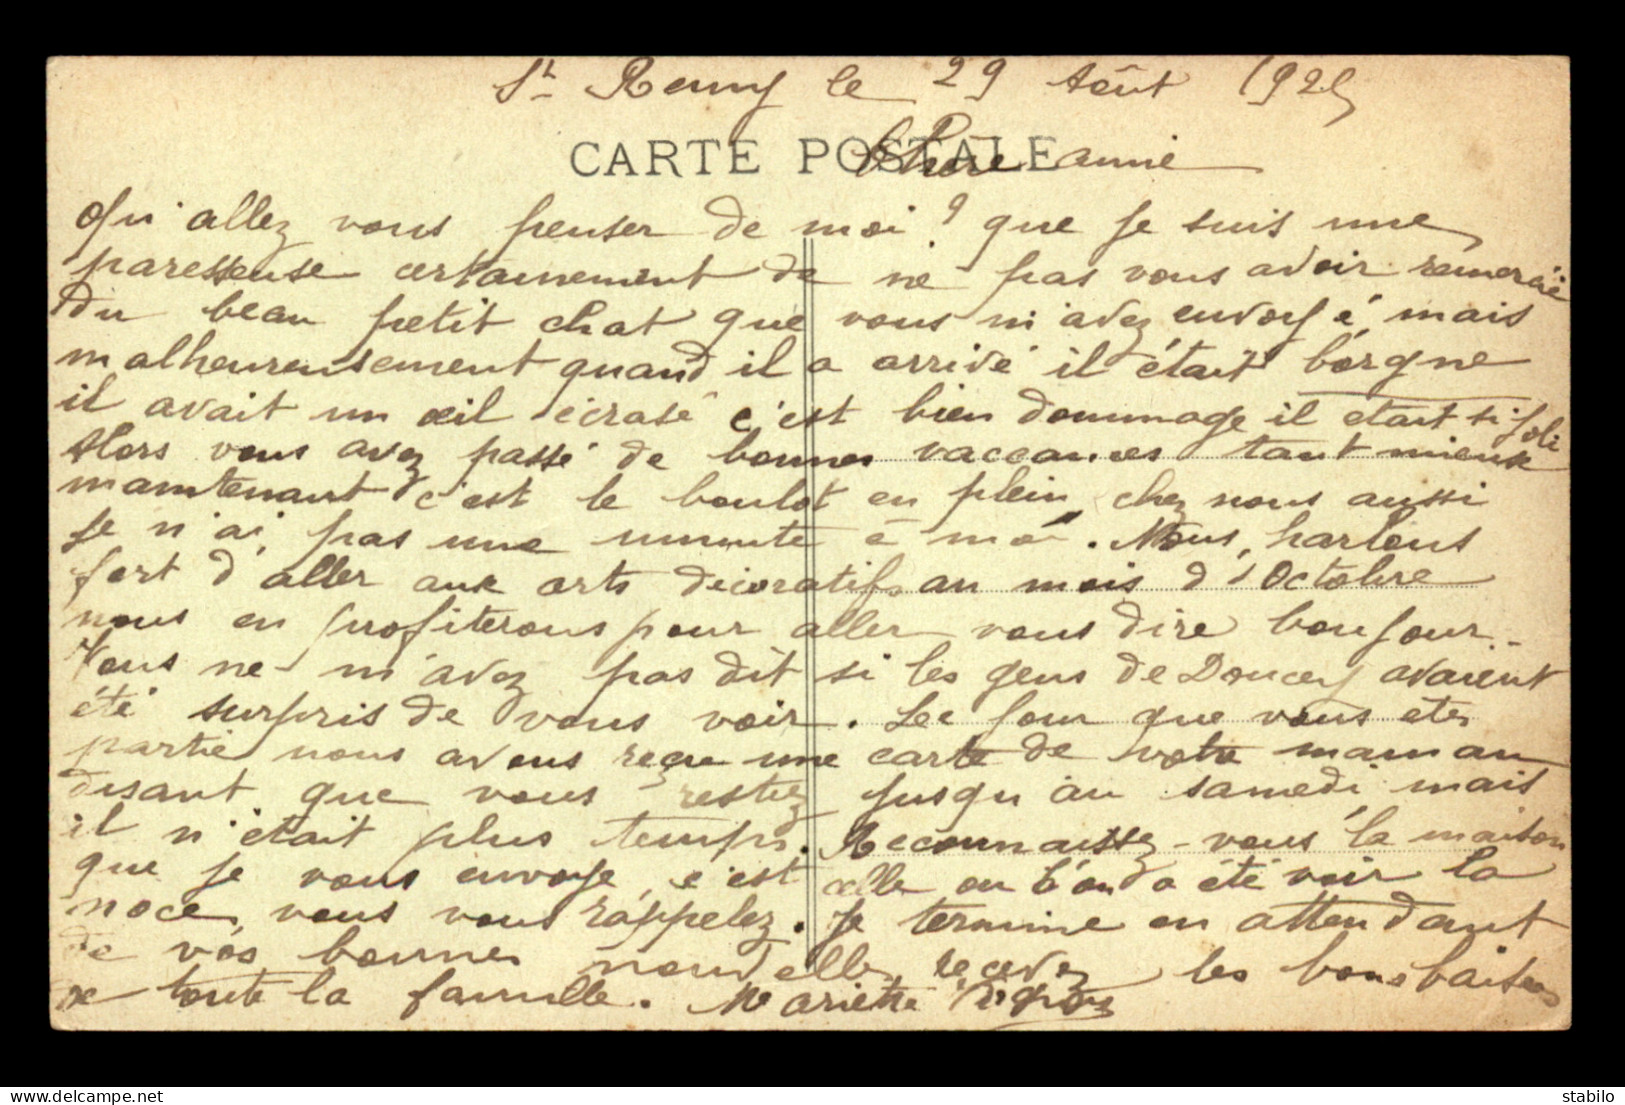 St Remy le 29 Août 1925
CARTE POSTALE
Chère amie
Qu'allez vous penser de moi ? que je suis une
paresseuse certainement de ne pas vous avoir remercié
du beau petit chat que vous m'avez envoyé, mais
malheureusement quand il a arrivé il était borgne
il avait un œil écrasé c'est bien dommage il était si joli
Alors vous avez passé de bonnes vaccances tant mieux
maintenant c'est le boulot en plein, chez nous aussi
je n'ai pas une minute à moi. Nous parlons
fort d'aller aux arts décoratifs au mois d'Octobre
nous en profiterons pour aller vous dire bonjour.
Vous ne m'avez pas dit si les gens de Doucey avaient
été surpris de vous voir. Le jour que vous êtes
partie nous avons reçu une carte de votre maman
disant que vous restiez jusqu'au samedi mais
il n'était plus temps. Reconnaissez-vous la maison
que je vous envoye, c'est celle ou l'on a été voir la
noce, vous vous rappelez. Je termine en attendant
de vos bonnes nouvelles, recevez les bons baisers
de toute la famille. Mariette
delcampe.net
stabilo